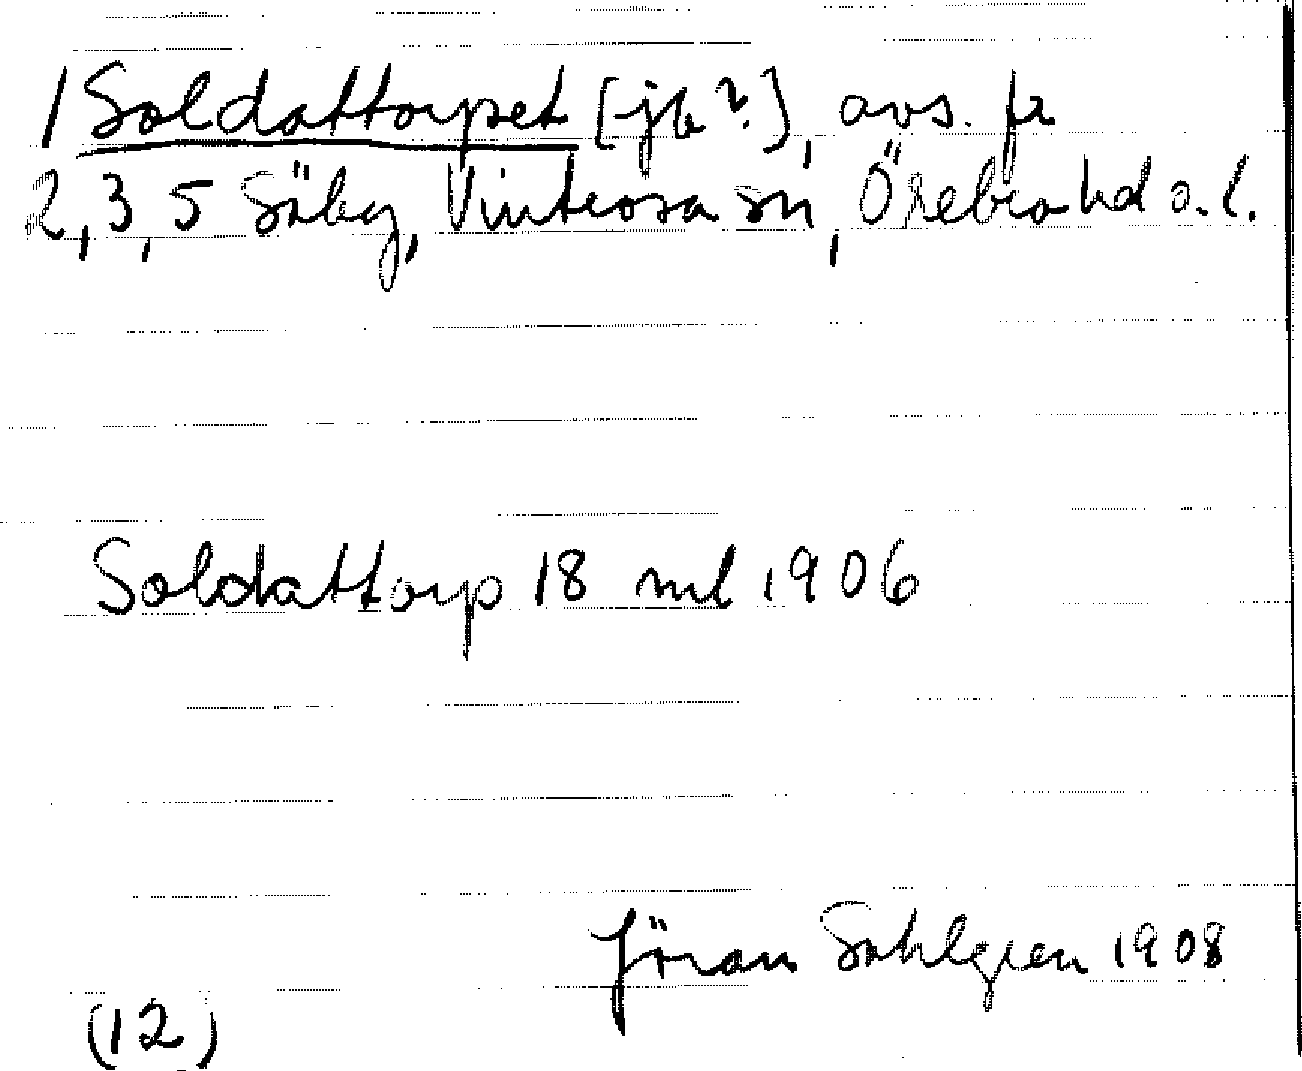 1 Soldattorpet [jb?], avs. fr
2, 3, 5 Säby, Vintrosa sn, Örebro hd ö. l.
Soldattorp 18 ml 1906
Jöran Sahlgren 1908
(12)